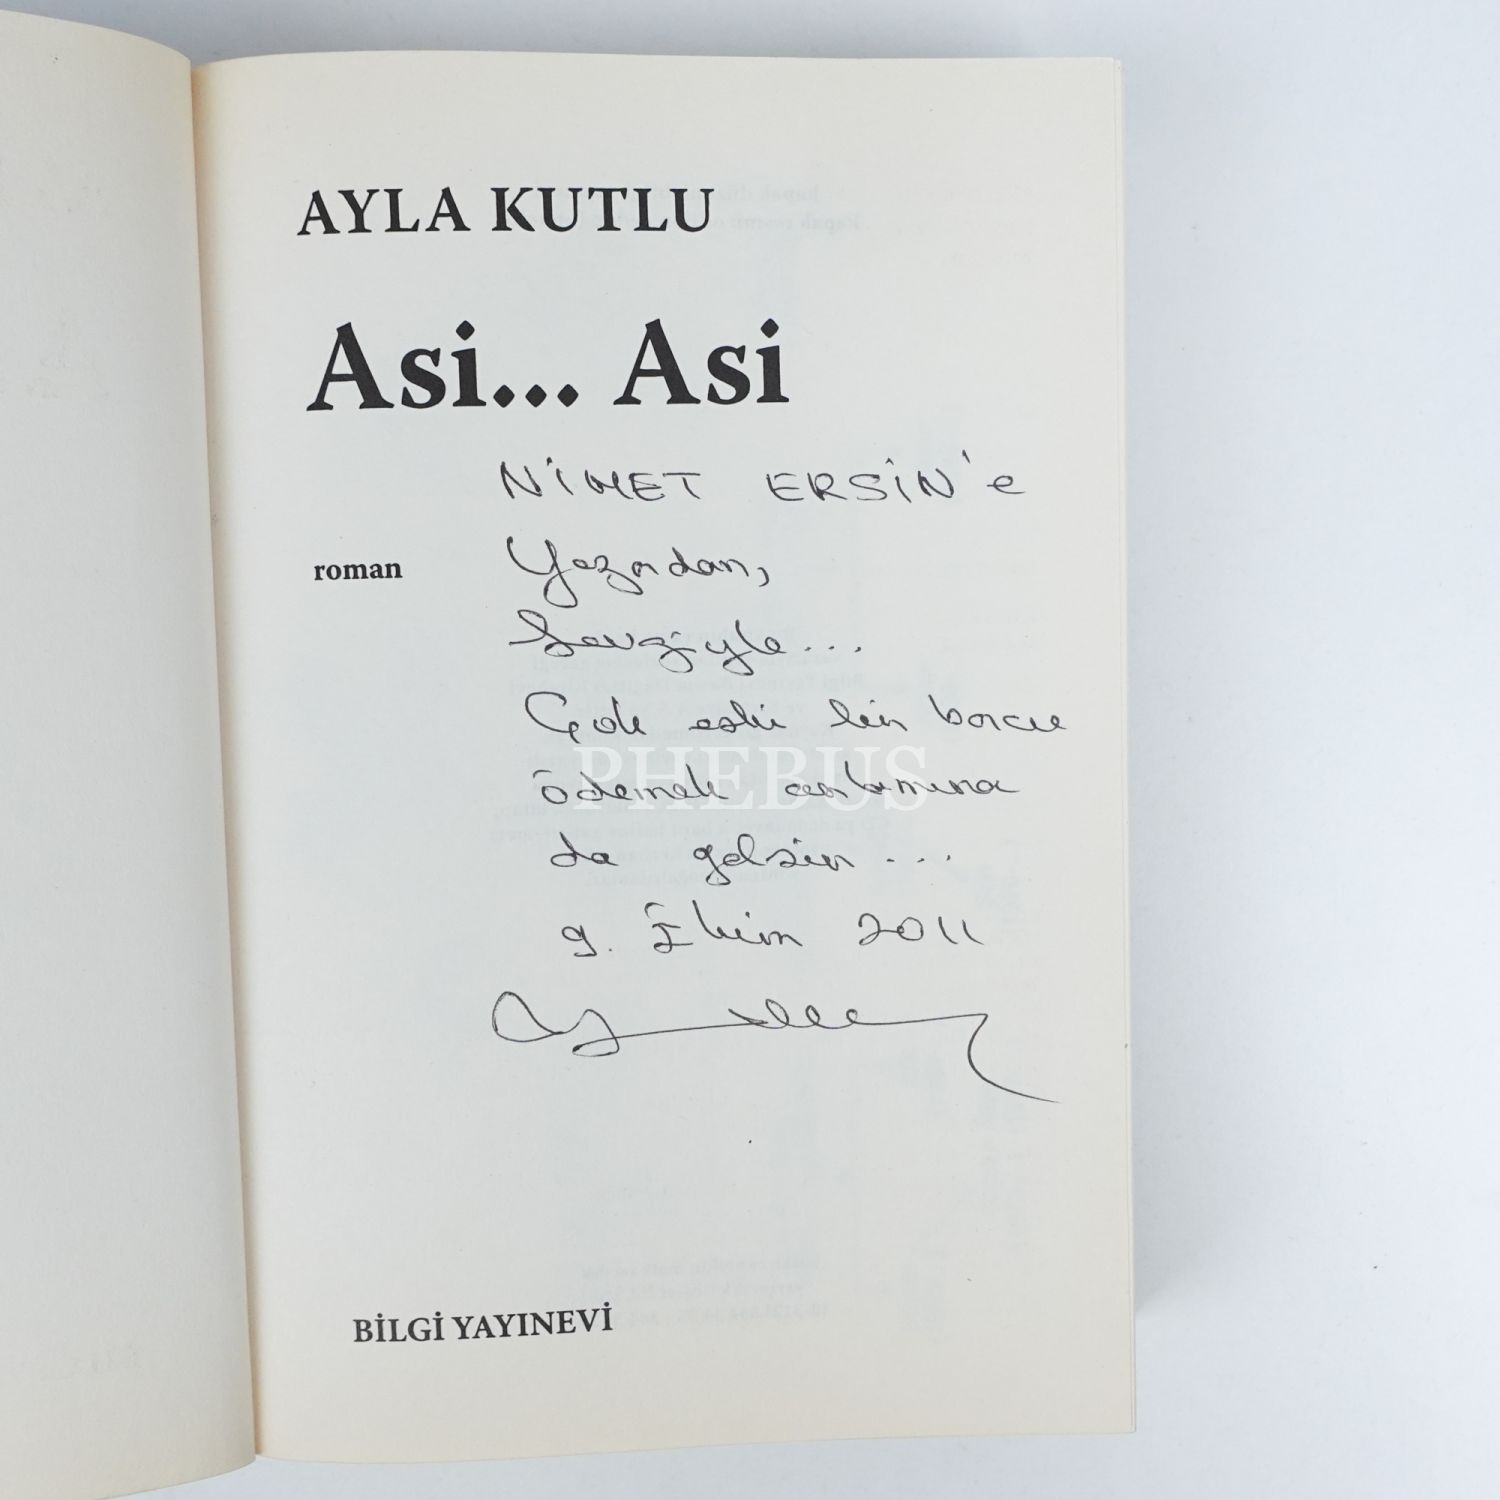 AYLA KUTLU
Asi... Asi
NİMET ERSİN'e
roman
Yazardan,
Sevgiyle...
Çok eski bir borcu
PHEBUS
ödemek anlamına
da gelsin...
9. Ekim 2011
BİLGİ YAYINEVİ